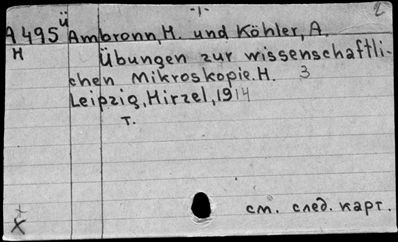 -1- 2
ü
A495 Ambronn, H. und Köhler, A.
H Übungen zur wissenschaftli-
chen Mikroskopie. H. 3
Leipzig, Hirzel, 1914
T.
X см. след. карт.